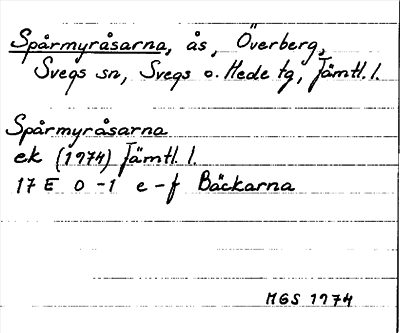 Spårmyråsarna, ås, Överberg,
Svegs sn, Svegs o. Hede tg, Jämtl. l.
Spårmyråsarna
ek (1974) Jämtl. l.
17 E 0 - 1 e - f Bäckarna
MGS 1974